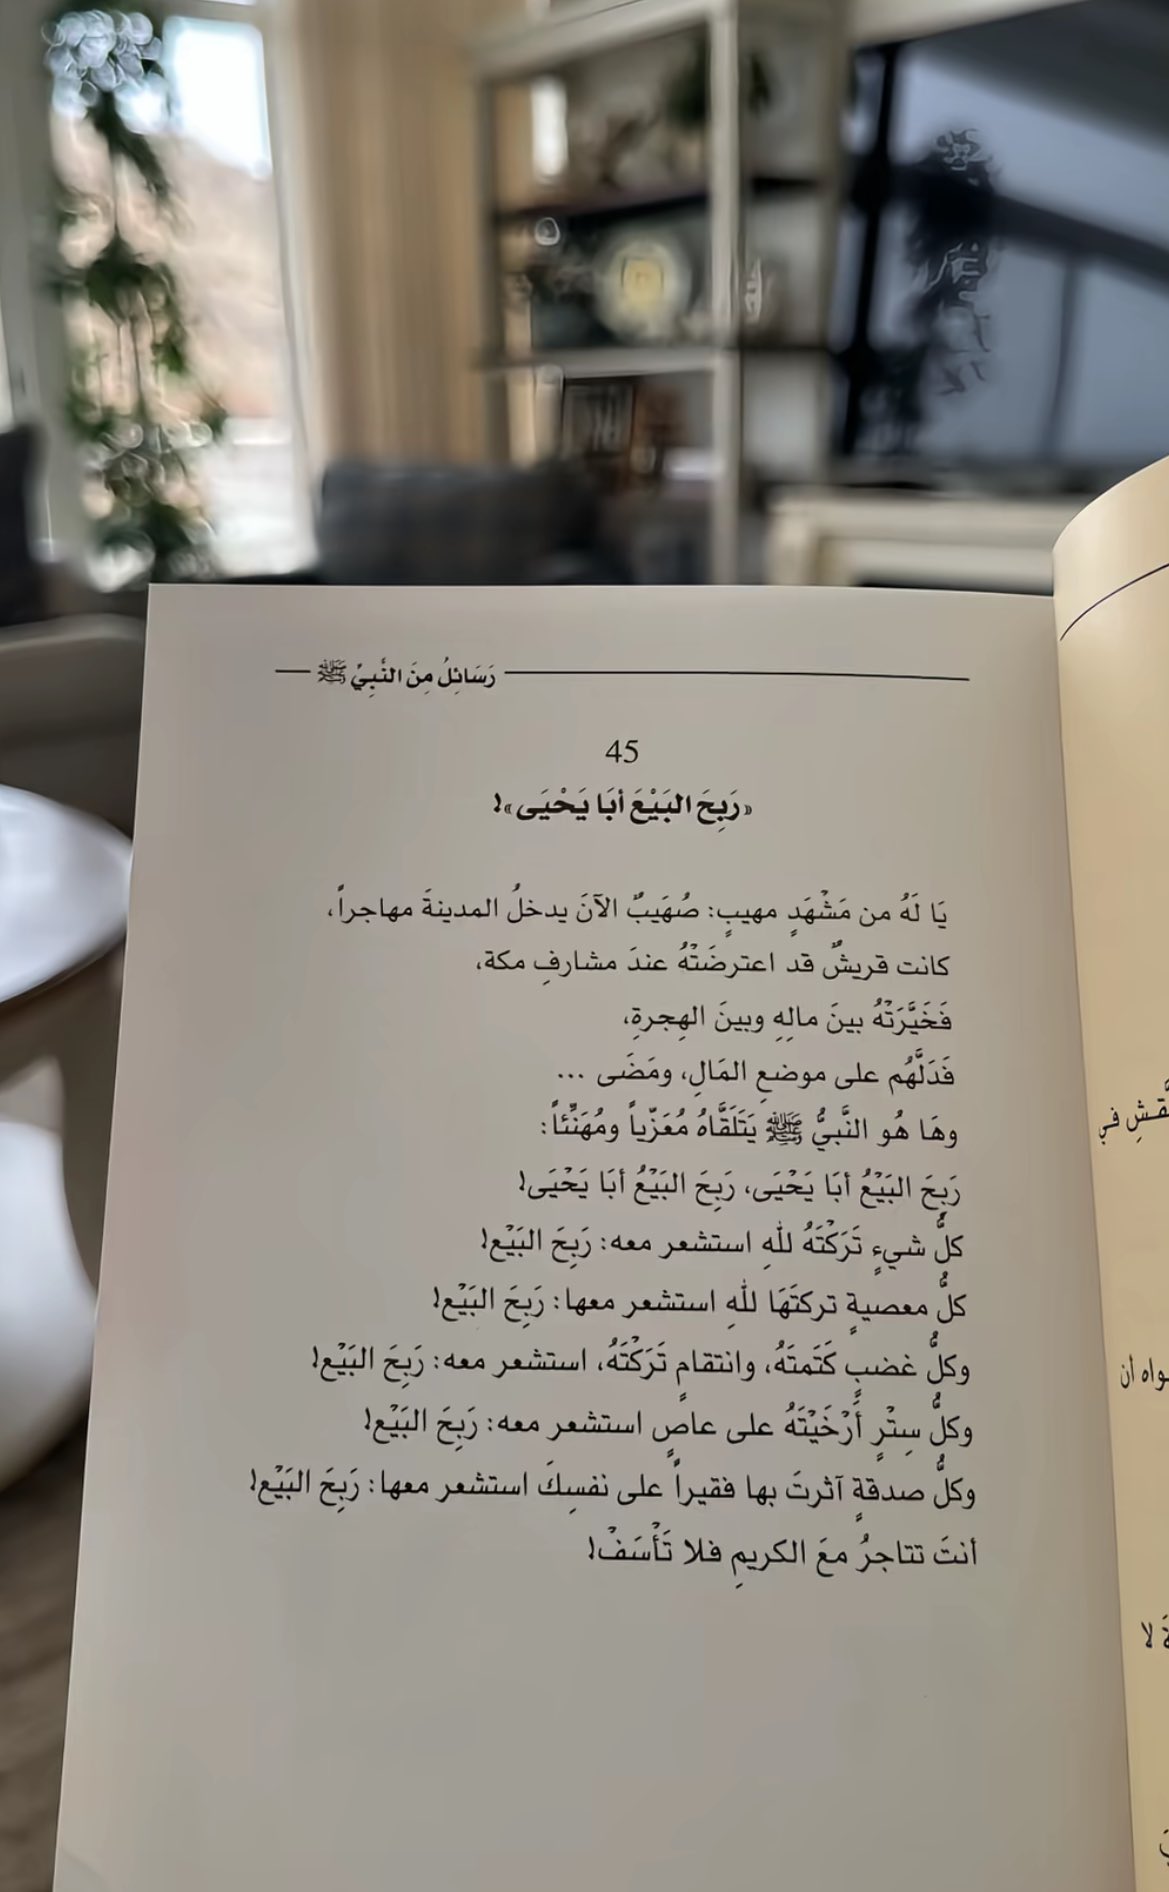 رَسَائِلُ مِنَ النَّبِيِّ ﷺ
45
«رَبِحَ البَيْعَ أبَا يَحْيَى»!
يَا لَهُ من مَشْهَدٍ مهيبٍ: صُهَيبٌ الآنَ يدخلُ المدينةَ مهاجراً،
كانت قريشٌ قد اعترضَتْهُ عندَ مشارفِ مكة،
فَخَيَّرَتْهُ بينَ مالِهِ وبينَ الهِجرةِ،
فَدَلَّهُم على موضعِ المَالِ، ومَضَى ...
وهَا هُو النَّبيُّ ﷺ يَتَلَقَّاهُ مُعَزّياً ومُهَنِّئاً:
رَبِحَ البَيْعُ أبَا يَحْيَى، رَبِحَ البَيْعُ أبَا يَحْيَى!
كلُّ شيءٍ تَرَكْتَهُ للهِ استشعر معه: رَبِحَ البَيْع!
كلُّ معصيةٍ تركتَهَا للهِ استشعر معها: رَبِحَ البَيْع!
وكلُّ غضبٍ كَتَمتَهُ، وانتقامٍ تَرَكْتَهُ، استشعر معه: رَبِحَ البَيْع!
وكلُّ سِتْرٍ أَرْخَيْتَهُ على عاصٍ استشعر معه: رَبِحَ البَيْع!
وكلُّ صدقةٍ آثرتَ بها فقيراً على نفسِكَ استشعر معها: رَبِحَ البَيْع!
أنتَ تتاجرُ معَ الكريمِ فلا تَأْسَفْ!
في
أن
لا